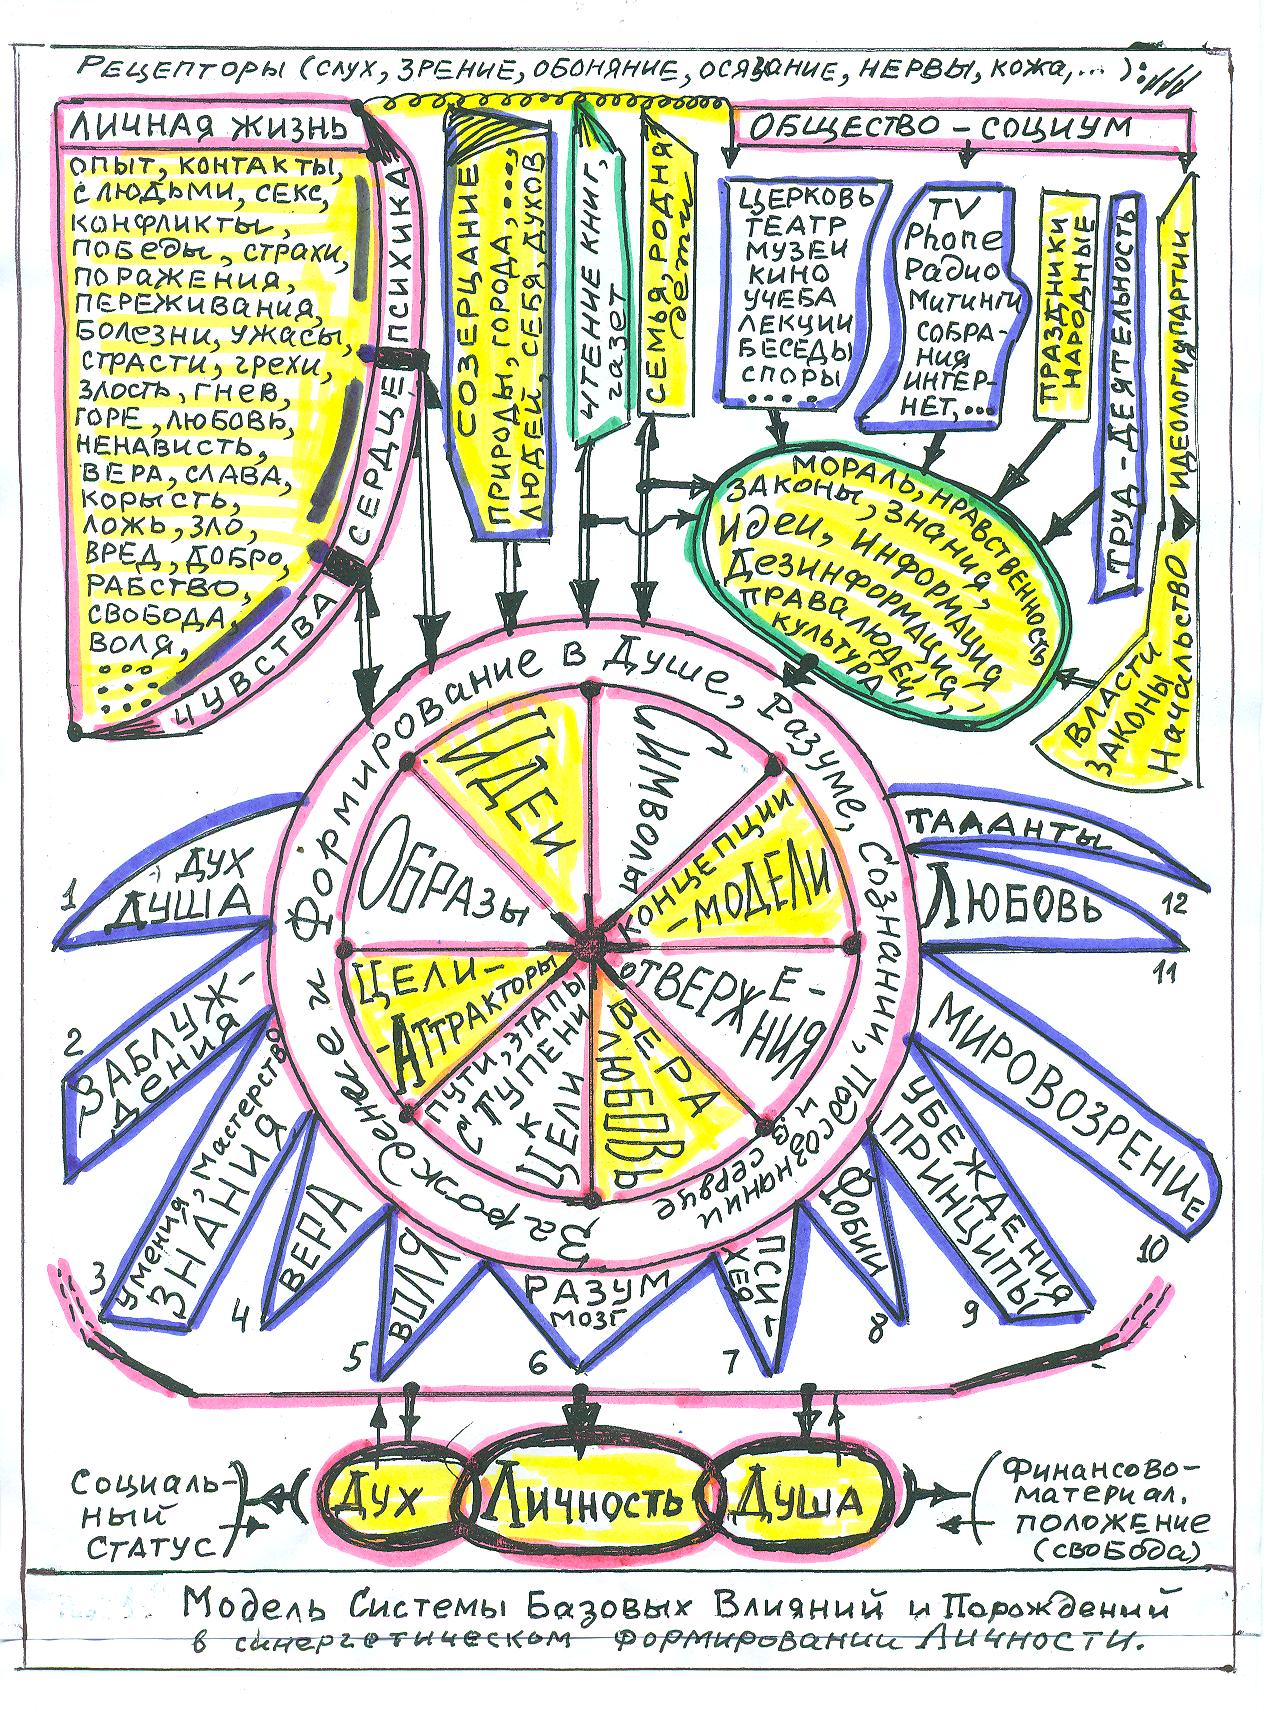 Рецепторы (слух, зрение, обоняние, осязание, нервы, кожа,...):
Личная жизнь
опыт, контакты,
с людьми, секс,
конфликты,
победы, страхи,
поражения,
переживания,
болезни, ужасы,
страсти, грехи,
злость, гнев,
горе, любовь,
ненависть,
вера, слава,
корысть,
ложь, зло,
вред, добро,
рабство,
свобода,
воля,
......
Психика
Сердце
Чувства
Созерцание
природы, города, ....,
людей, себя, духов
Чтение книг,
газет
Семья, родня
дети
Общество - социум
Церковь
театр
музеи
кино
учеба
лекции
беседы
споры
....
TV
Phone
Радио
Митинги
собра-
ния
интер-
нет,...
Праздники
народные
Труд-деятельность
Идеологии, партии
Власти
законы
Начальство
Мораль, нравственность
законы, знания,
идеи, информация,
дезинформация,
права людей,
культура
Зарождение и Формирование в Душе, Разуме, Сознании, Подсознании
и сердце
Идеи
Символы
Концепции
-модели
Отверже-
ния
Вера
Любовь
Пути, этапы
ступени
к
цели
Цели-
-Аттракторы
Образы
1
Дух
Душа
2
Заблуж-
дения
3
Умения, мастерство
Знания
4
Вера
5
Воля
6
Разум
мозг
7
Пси-
хея
8
Фобии
9
Убеждения
принципы
10
Мировозрение
11
Любовь
12
Таланты
Социаль-
ный
статус
Дух
Личность
Душа
Финансово-
материал.
положение
(свобода)
Модель Системы Базовых Влияний и Порождений
в синергетическом формировании Личности.